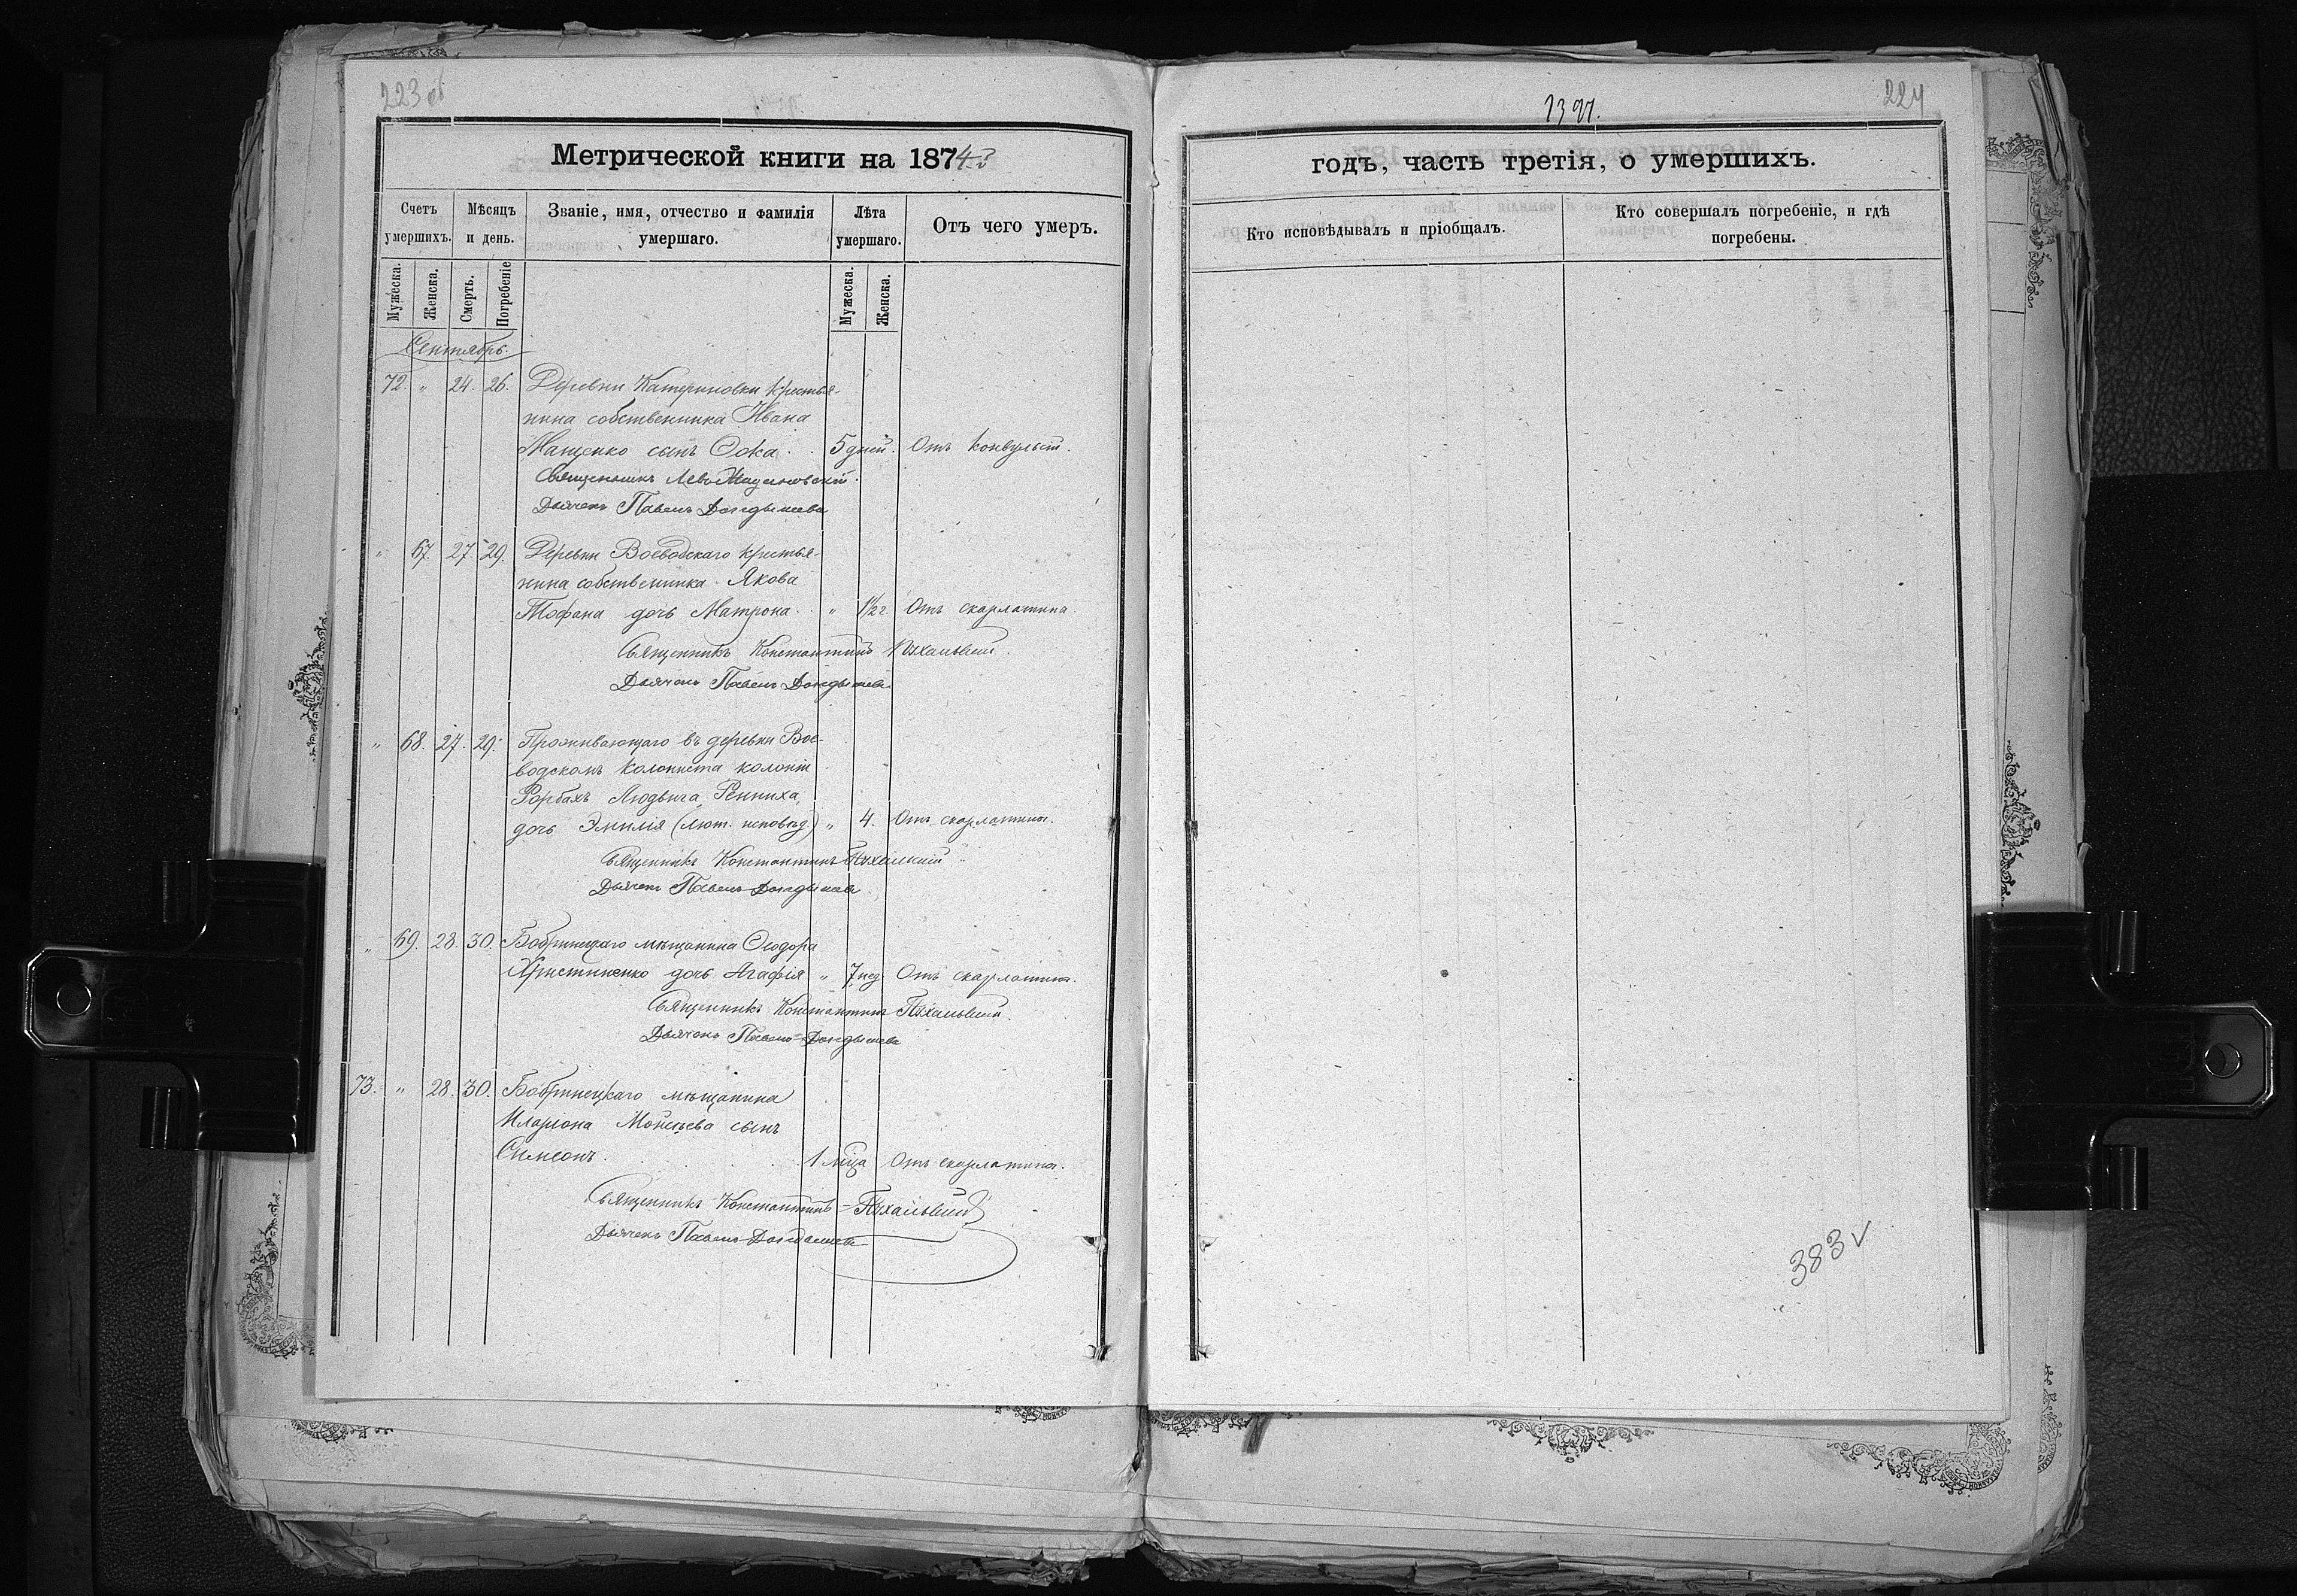 223 об
1391.
224
Метрической книги на 1874 г
годъ, часть третія, о умершихъ.
Счетъ умершихъ.
Мѣсяцъ и день.
Званіе, имя, отчество и фамилія умершаго.
Лѣта умершаго.
Отъ чего умеръ.
Кто исповѣдывалъ и пріобщалъ.
Кто совершалъ погребеніе, и гдѣ погребены.
Мужеска.
Женска.
Смерть.
Погребеніе
Мужеска.
Женска.
Сентябрь.
72. " 24. 26. Деревни Катериновки крестья-
нина собственника Ивана
Мащенко сынъ 5 дней. Отъ конвульсій.
Священникъ Левъ
Дьячекъ Павелъ
" 67. 27. 29. Деревни Воеводскаго крестья-
нина собственника Якова
Тофана дочь Матрона. " 1½ г. Отъ скарлатина.
Священникъ Константинъ
Дьячекъ Павелъ
" 68. 27. 29. Проживающаго въ деревни Вое-
водскомъ колониста колоніи
Рорбахъ Людвига Ренниха,
дочь Эмилія (лют. исповѣд.) " 4. Отъ скарлатины.
Священникъ Константинъ
Дьячекъ Павелъ
" 69. 28. 30. Бобринецкаго мѣщанина Ѳеодора
Христиненко дочь Агафія " 7 нед Отъ скарлатина.
Священникъ Константинъ
Дьячекъ Павелъ
73. " 28. 30. Бобринецкаго мѣщанина
Иларіона Мойсѣева сынъ
Симеонъ. 1 мца Отъ скарлатина.
Священникъ Константинъ
Дьячекъ Павелъ
383 ✓